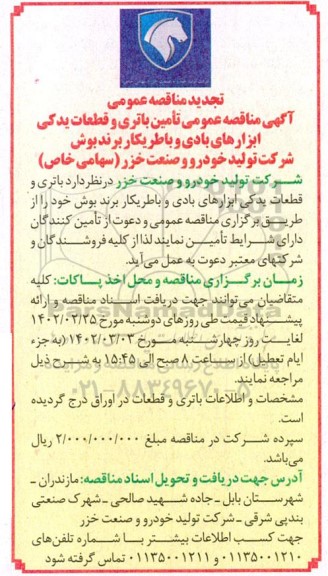 تجدید مناقصه عمومی
آگهی مناقصه عمومی تأمین باتری و قطعات یدکی
ابزارهای بادی و باطریکار برند بوش
شرکت تولید خودرو و صنعت خزر (سهامی خاص)
شرکت تولید خودرو و صنعت خزر درنظر دارد باتری و
قطعات یدکی ابزارهای بادی و باطریکار برند بوش خود را از
طریق برگزاری مناقصه عمومی و دعوت از تأمین کنندگان
دارای شرایط تأمین نمایند لذا از کلیه فروشندگان و
شرکتهای معتبر دعوت به عمل می‌آید.
زمان برگزاری مناقصه و محل اخذ پاکات: کلیه
متقاضیان می‌توانند جهت دریافت اسناد مناقصه و ارائه
پیشنهاد قیمت طی روزهای دوشنبه مورخ ۱۴۰۲/۰۲/۲۵
لغایت روز چهارشنبه مورخ ۱۴۰۲/۰۳/۰۳ (به جزء
ایام تعطیل) از ساعت ۸ صبح الی ۱۵:۴۵ به شرح ذیل
مراجعه نمایند.
۰۲۱-۸۸۳۴۹۶۷۰-۵
مشخصات و اطلاعات باتری و قطعات در اوراق درج گردیده
است.
سپرده شرکت در مناقصه مبلغ ۲/۰۰۰/۰۰۰/۰۰۰ ریال
می‌باشد.
آدرس جهت دریافت و تحویل اسناد مناقصه: مازندران –
شهرستان بابل – جاده شهید صالحی – شهرک صنعتی
بندپی شرقی – شرکت تولید خودرو و صنعت خزر
جهت کسب اطلاعات بیشتر با شماره تلفن‌های
۰۱۱۳۵۰۰۱۲۱۰ و ۰۱۱۳۵۰۰۱۲۱۱ تماس گرفته شود